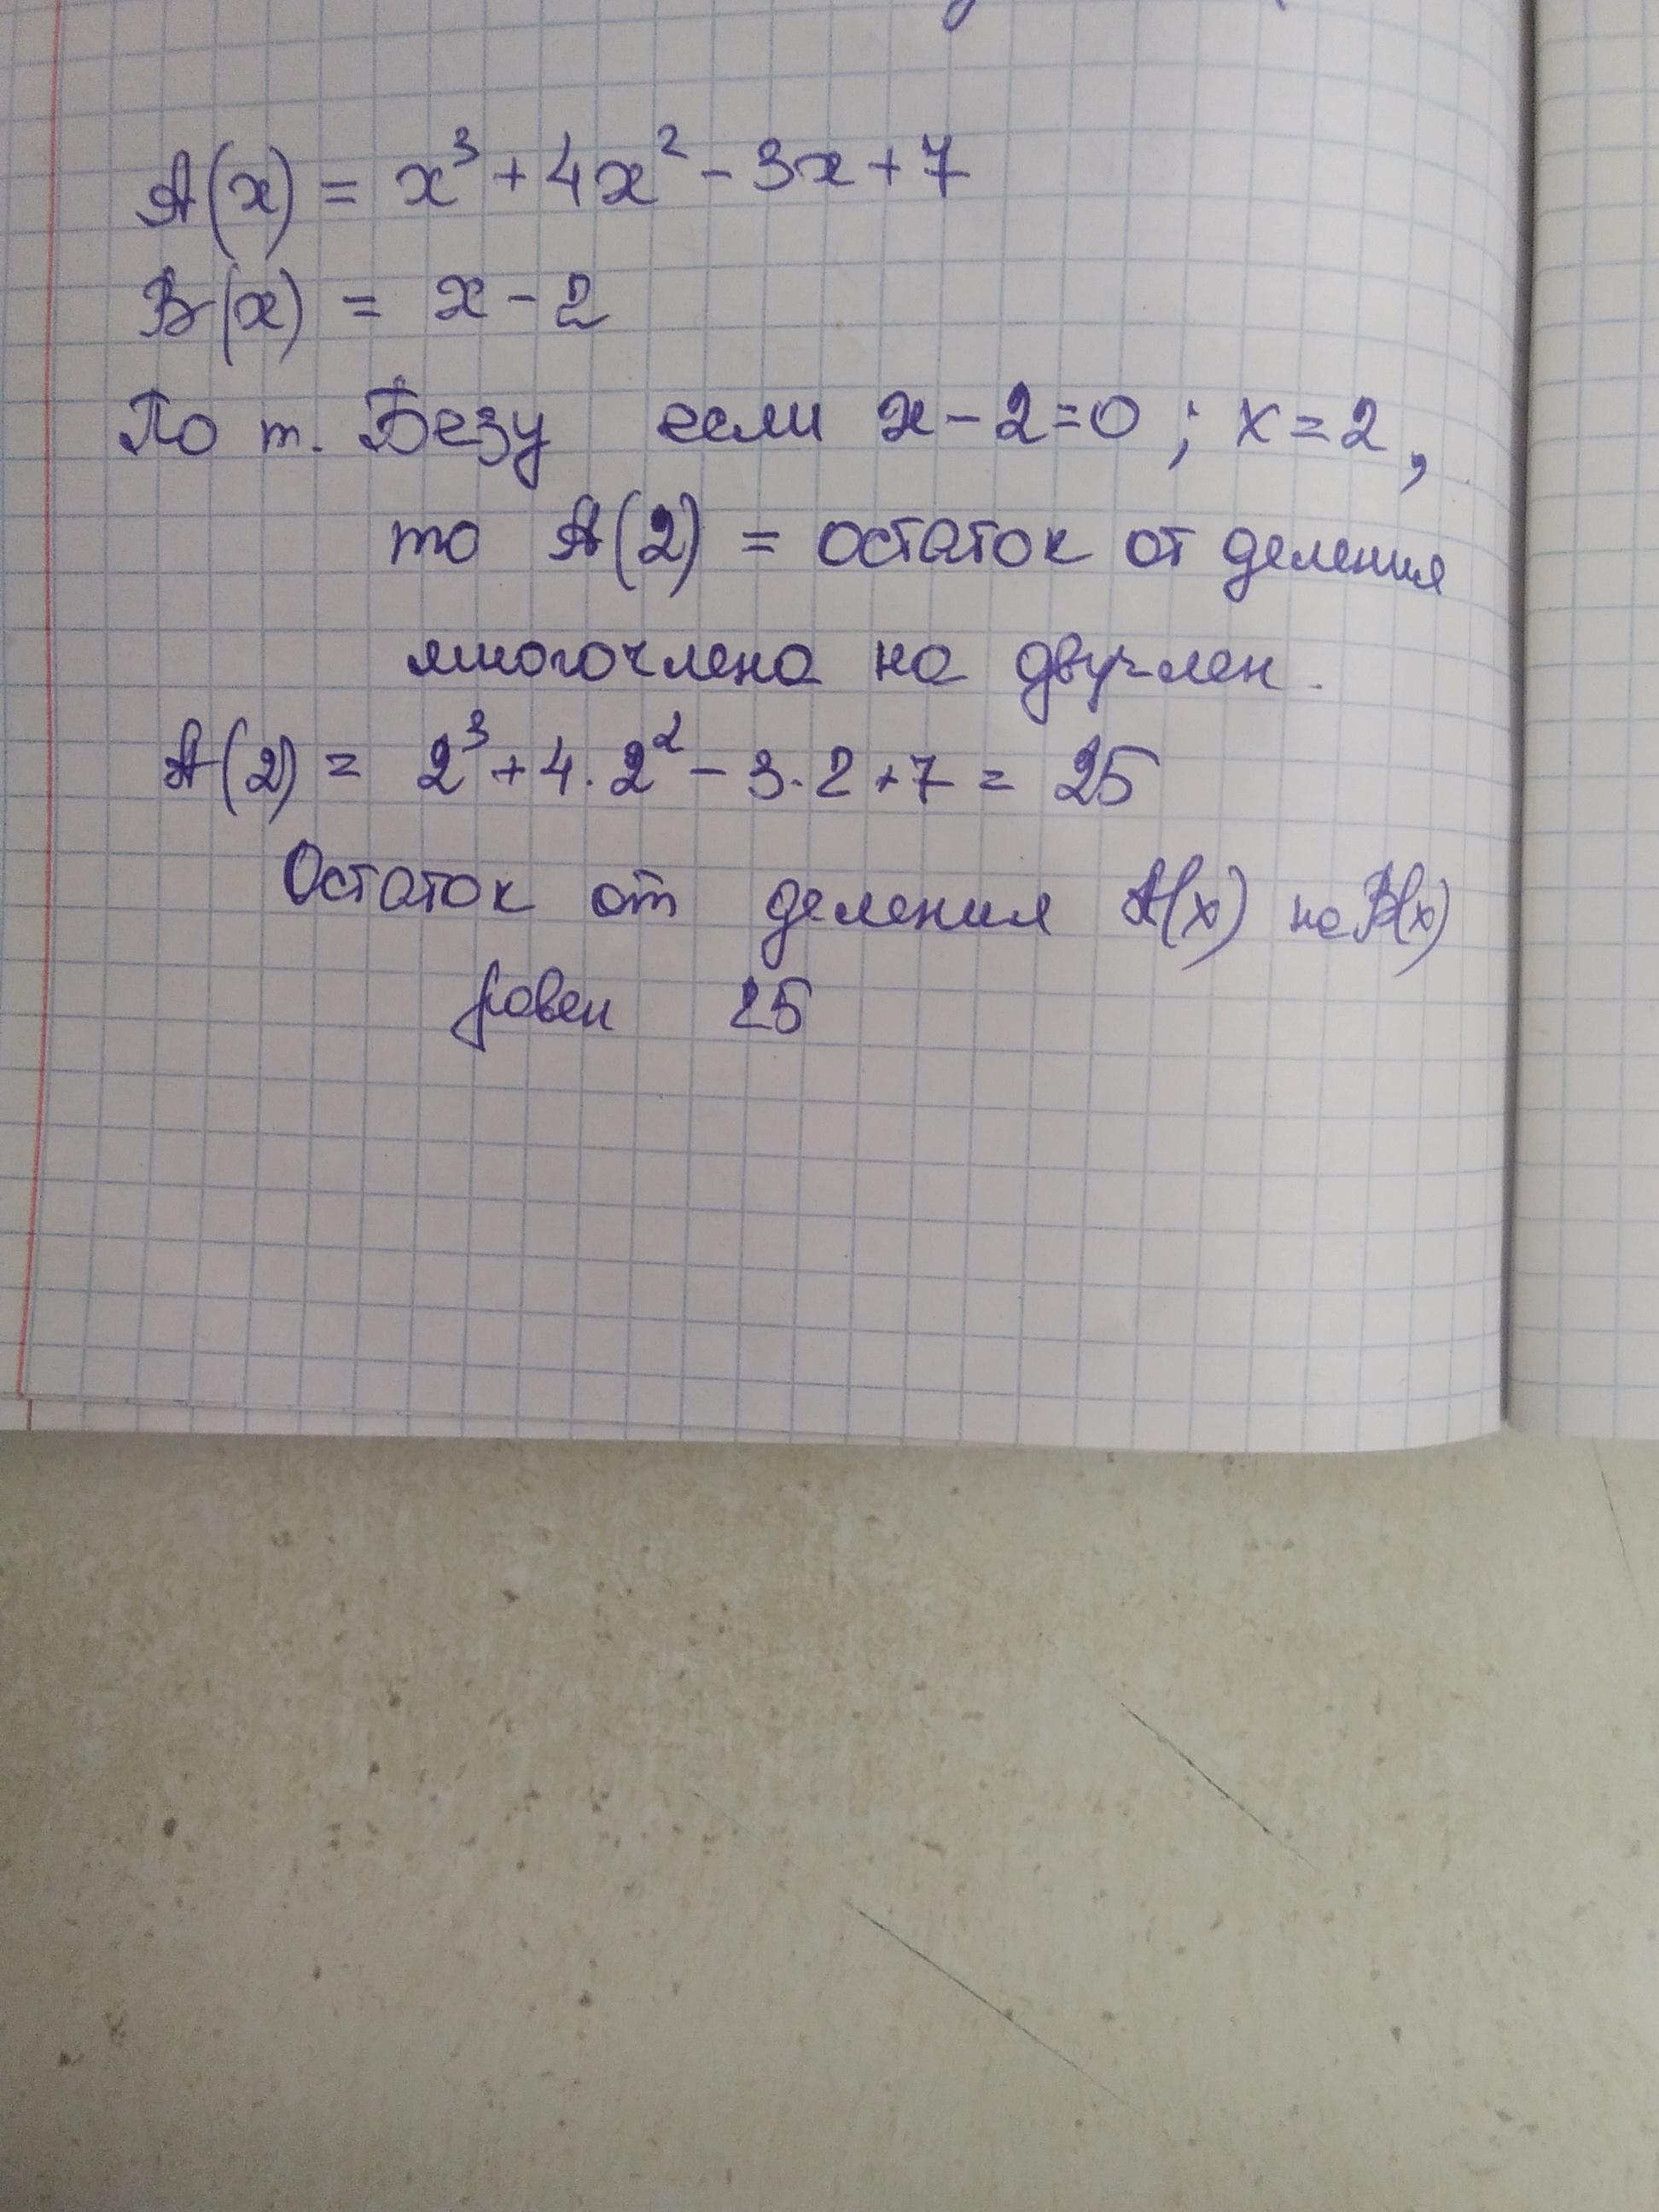 A(x) = x³ + 4x² - 3x + 7
B(x) = x - 2
По т. Безу если x - 2 = 0 ; x = 2 ,
то A(2) = остаток от деления
многочлена на двучлен.
A(2) = 2³ + 4 · 2² - 3 · 2 + 7 = 25
Остаток от деления A(x) на B(x)
равен 25